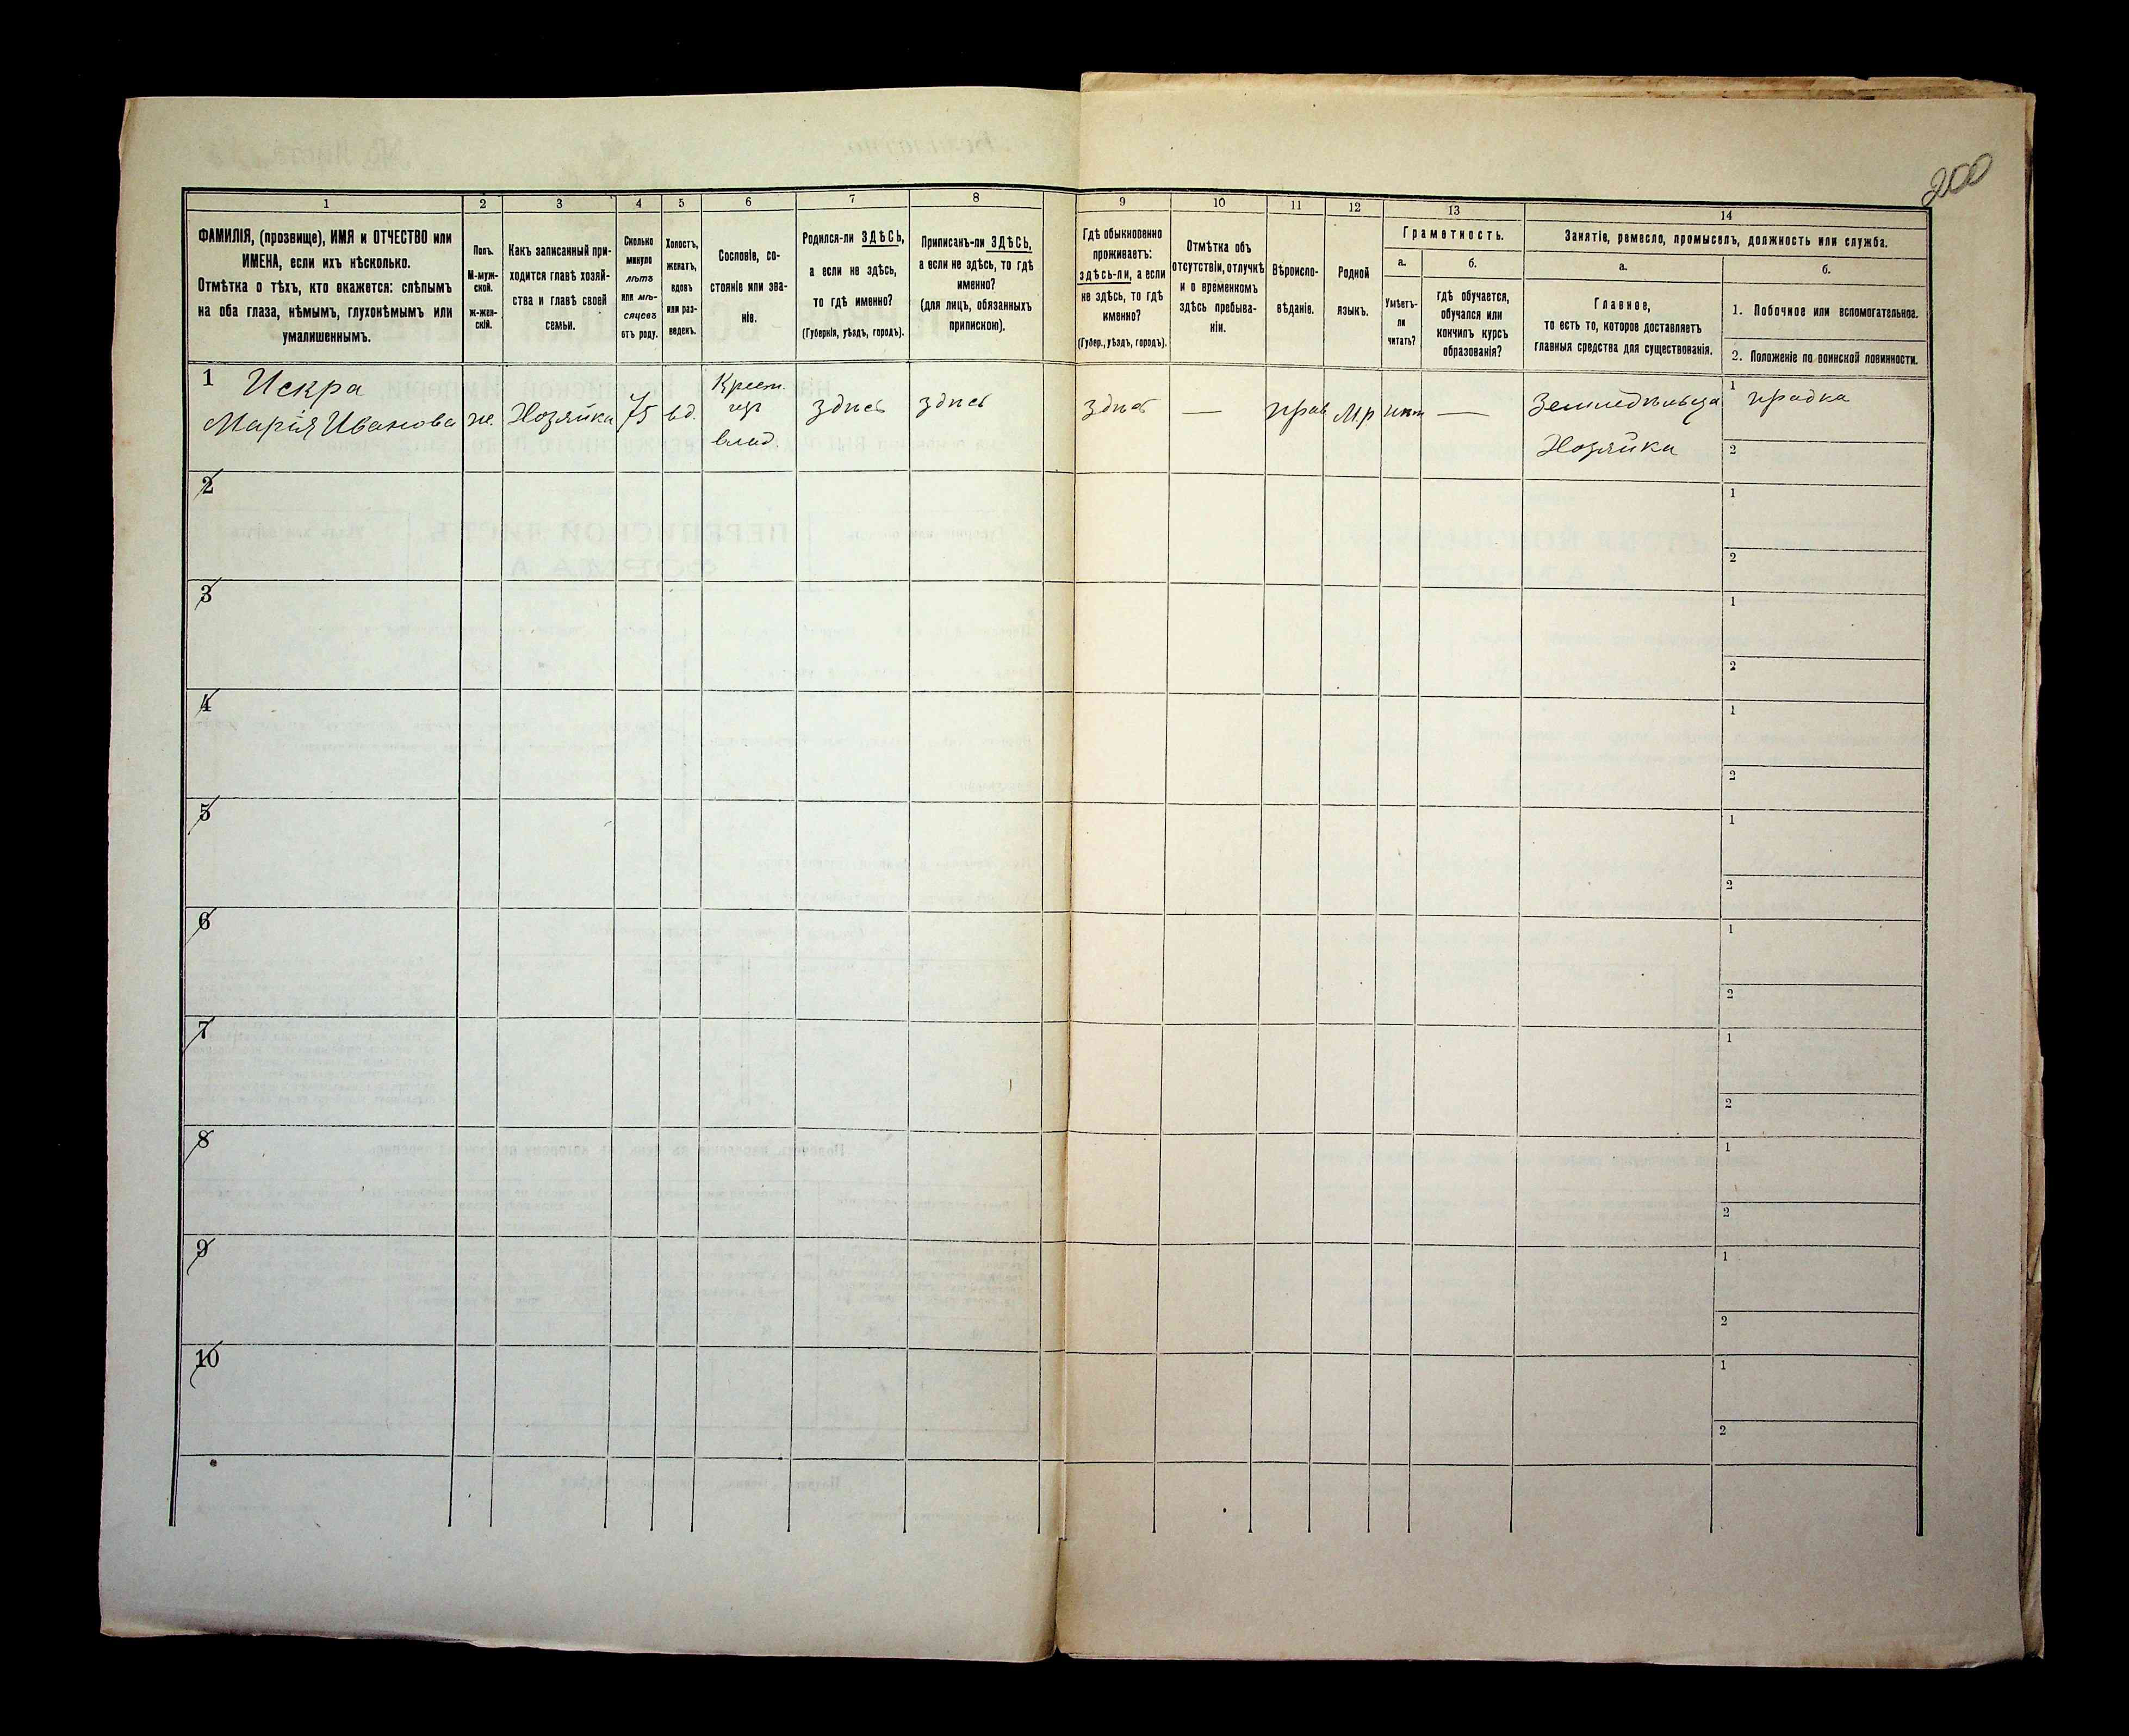 200
1
2
3
4
5
6
7
8
9
10
11
12
13
14
ФАМИЛІЯ, (прозвище), ИМЯ и ОТЧЕСТВО или
ИМЕНА, если ихъ нѣсколько.
Отмѣтка о тѣхъ, кто окажется: слѣпымъ
на оба глаза, нѣмымъ, глухонѣмымъ или
умалишеннымъ.
Полъ.
М-муж-
ской.
ж-жен-
скій.
Какъ записанный при-
ходится главѣ хозяй-
ства и главѣ своей
семьи.
Сколько
минуло
лѣтъ
или мѣ-
сяцевъ
отъ роду.
Холостъ,
женатъ,
вдовъ
или раз-
веденъ.
Сословіе, со-
стояніе или зва-
ніе.
Родился-ли ЗДѢСЬ,
а если не здѣсь,
то гдѣ именно?
(Губернія, уѣздъ, городъ).
Приписанъ-ли ЗДѢСЬ,
а если не здѣсь, то гдѣ
именно?
(для лицъ, обязанныхъ
припискою).
Гдѣ обыкновенно
проживаетъ:
здѣсь-ли, а если
не здѣсь, то гдѣ
именно?
(Губер., уѣздъ, городъ).
Отмѣтка объ
отсутствіи, отлучкѣ
и о временномъ
здѣсь пребыва-
ніи.
Вѣроиспо-
вѣданіе.
Родной
языкъ.
Грамотность.
а.
Умѣетъ-
ли
читать?
б.
гдѣ обучается,
обучался или
кончилъ курсъ
образованія?
Занятіе, ремесло, промыселъ, должность или служба.
а.
Главное,
то есть то, которое доставляетъ
главныя средства для существованія.
б.
1. Побочное или вспомогательное.
2. Положеніе по воинской повинности.
1 Искра
Марія Иванова
ж.
Хозяйка
75
вд.
Крест.
изъ
влад.
здѣсь
здѣсь
здѣсь
—
прав
М.р
нѣт
—
Земледѣльца
Хозяйка
1 прядка
2
2
1
2
3
1
2
4
1
2
5
1
2
6
1
2
7
1
2
8
1
2
9
1
2
10
1
2